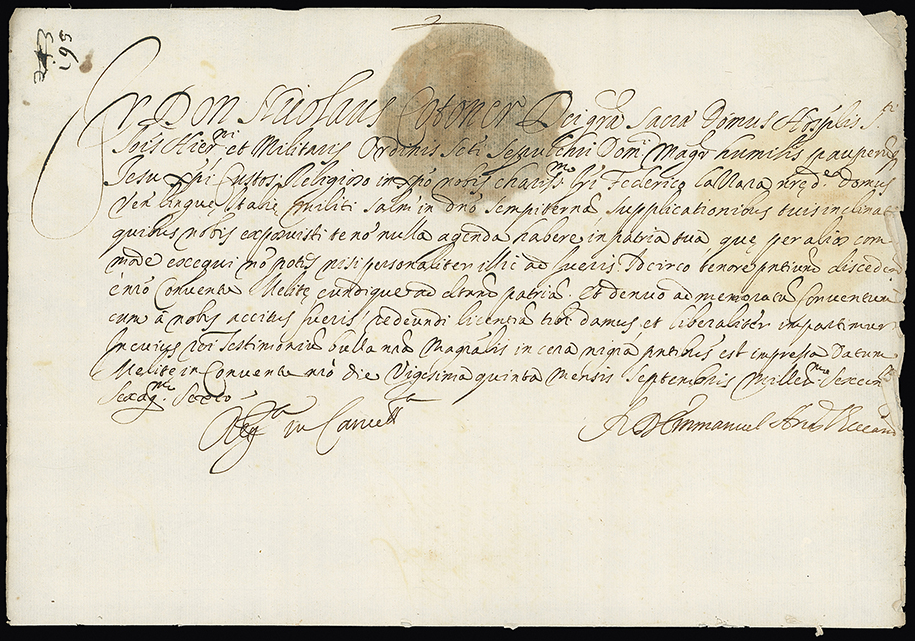 273
195
Fr Don Nicolaus Cotoner Dei grã Sacræ Domus Hosplis Sti
Jois Hiermi et Militaris Ordinis Scti Sepulchri Domci Magr humilis pauperuq
Jesu Xpi Custos Religioso in Xpo nobis charissmo fri Federico La Nara nrę de domus
Ven linguę Italię militi Salm in dno sempiternã Supplicationibus tuis inclinati
quibus nobis exposuisti te no nulla agenda habere in patria tua quę per alios com
mode excequi no potes nisi personaliter illic ad fueris. Idcirco tenore pntium discedendi
è nro Conventu Melitę eundique ad dictam patriã. Et denuo ad memoratũ Conventum
cum à nobis accitus fueris redeundi licentiã tibi damus et liberaliter impartimur
In cuius rei testimoniũ bulla nra Magralis in cera nigra pntibus est impressa Datum
Melitę in Conventu nro die Vigesima quinta mensis Septembris Millmo Sexcen
Sexagmo Sexto
Regta in Cancella
Fr D Emmanuel Arias